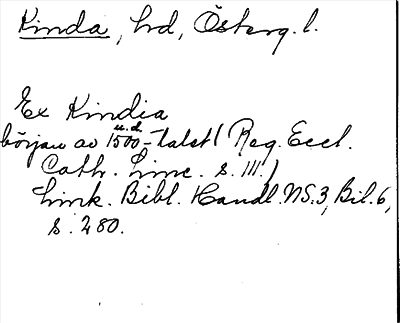 Kinda, hd, Österg. l.
Ex Kindia
u.d.
början av 1500-talet (Reg. Eccl.
Cath. Linc. s. III.)
Link. Bibl. Handl. NS. 3, Bil. 6,
s. 280.